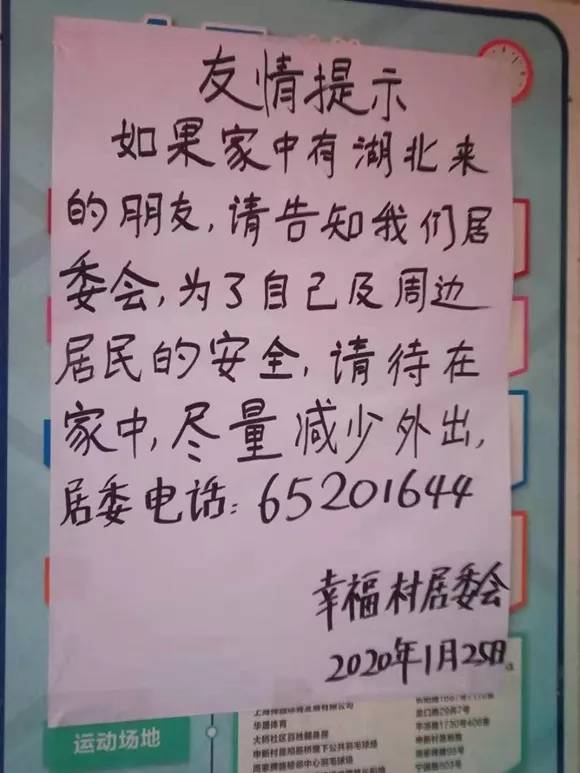 友情提示
如果家中有湖北来
的朋友,请告知我们居
委会,为了自己及周边
居民的安全,请待在
家中,尽量减少外出,
居委电话:65201644
幸福村居委会
2020年1月25日
运动场地
华愿体育